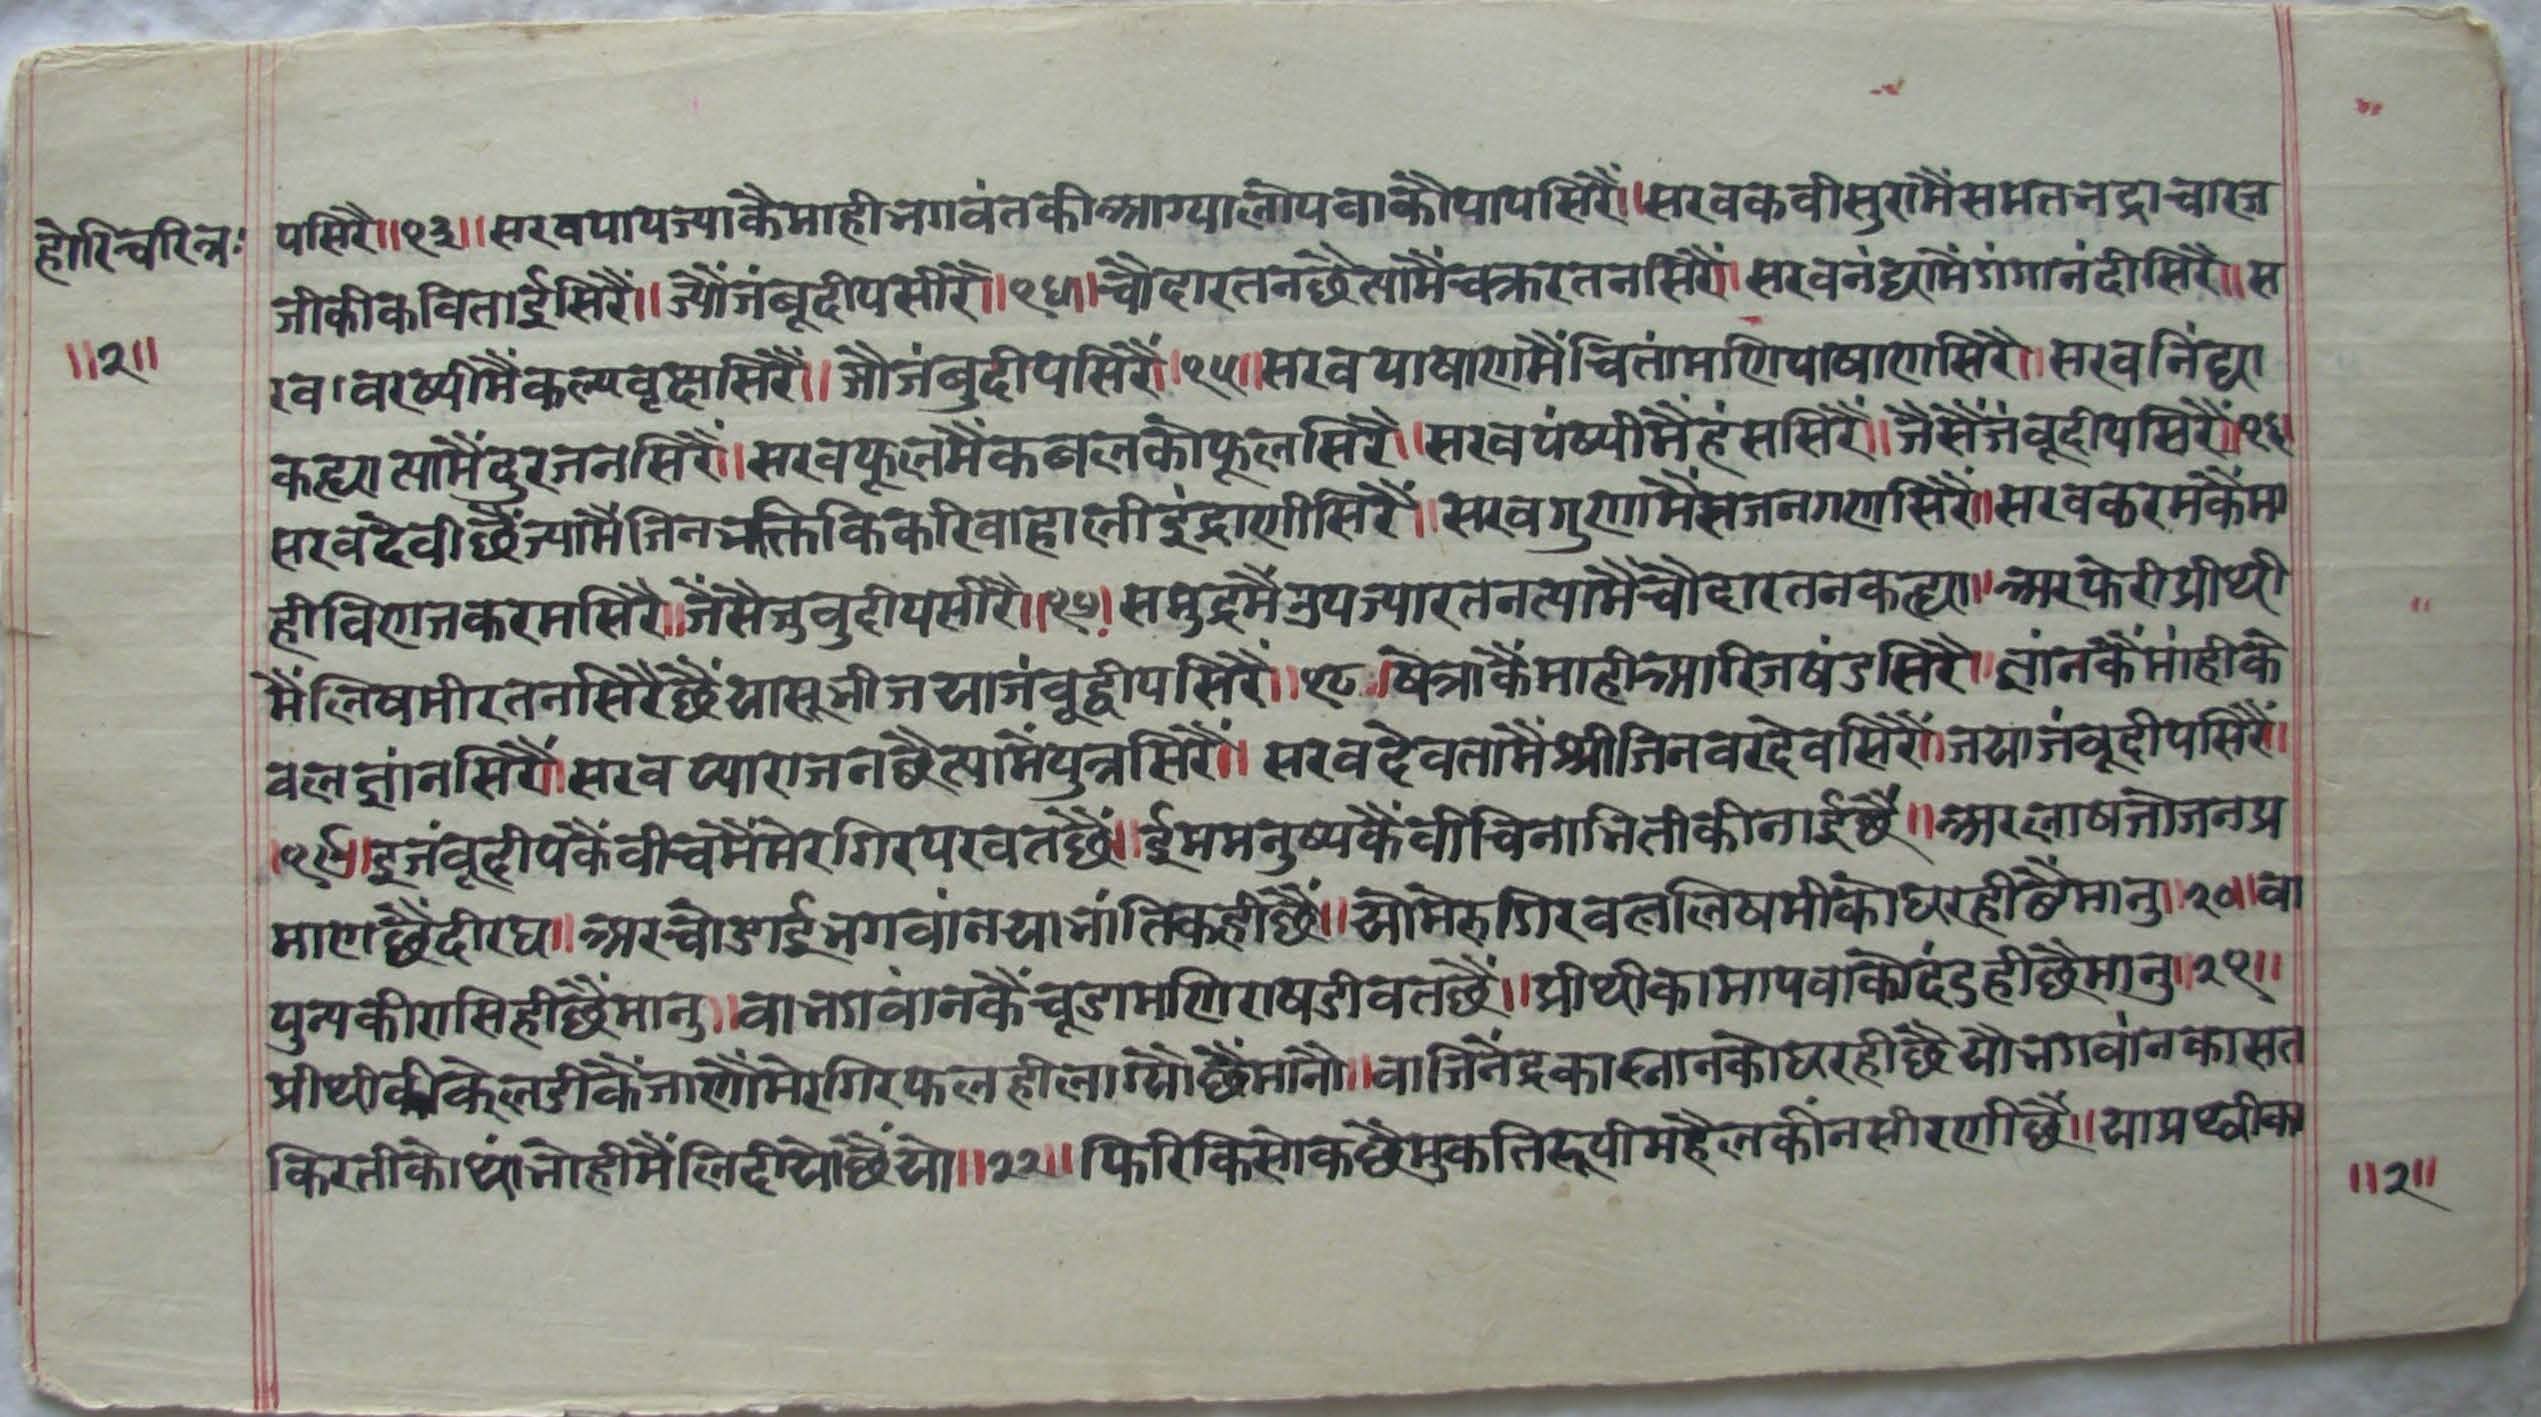 होरिचरित्रः
॥२॥
पसिरै॥१३॥सरवपापज्याकैमाहीभगवंतकीआग्यालोपवाकौपापसिरैं॥सरवकवीसुरामैंसमतभद्राचारज
जीकीकविताईसिरैं॥ज्यौंजंबूदीपसीरै॥१४॥चौदारतनछैत्यामैंचक्ररतनसिरैं।सरवनंद्यामैंगंगानंदीसिरै॥स
रव।वरष्यीमैंकल्पवृक्षसिरैं॥जौजंबुदीपसिरैं॥१५॥सरवपाषाणमैंचितांमणिपाषाणसिरै॥सरवनिंद्या
कह्यात्यामैंदुरजनसिरैं॥सरवफूलमैंकवलकोफूलसिरै॥सरवपंष्यीमैंहंससिरैं॥जैसैंजंवूदीपसिरैं॥१६॥
सरवदेवीछैंज्यामैजिनभक्तिकिकरिवाहालीइंद्राणीसिरैं॥सरवगुणामैंसजनगणसिरैं॥सरवकरमकैंमा
हीविणजकरमसिरै॥जैंसैजुवुदीपसीरै॥१७॥समुद्रमैंउपज्यारतनत्यामैंचौदारतनकह्या॥अरफेरीप्रीथी
मैंलिषमीरतनसिरैछैंयासूभीजयाजंवूद्वीपसिरैं॥१८॥षेत्राकैंमाहीआरिजषंडसिरै॥ज्ञांनकैंमांहीके
वलज्ञांनसिरैं॥सरवप्याराजनछैत्यामैंपुत्रसिरैं॥सरवदेवतामैंश्रीजिनवरदेवसिरैं॥जयाजंवूदीपसिरैं॥
॥१९॥इजंवूदीपकैंवीचमैंमेरगिरपरवतछैं॥ईममनुष्यकैंवीचिनाभितीकीनाईछै॥अरलाषजोजनप्र
माणछैंदीरघ॥अरचोडाईभगवांनयाभांतिकहीछैं॥योमेरुगिरवललिषमीकोघरहीछैमानु॥२०॥वा
पुन्यकीरासिहीछैंमानु॥वाभगवांनकैंचूडामणिराषडीवतछैं॥प्रीथीकामापवाकोदंडहीछैमानु॥२१॥
प्रीथीकीकेलडीकैंजाणौंमेरगिरफलहीलाग्योछैंमांनो॥वाजिनेंद्रकास्नानकोघरहीछैयौभगवांनकासत
किरतीकोथांभोहीमैंलिदीयोछैंयो॥२२॥फिरिकिसोकछैमुकतिरूपीमहैलकीनसीरणीछै॥याप्रथ्वीका
॥२॥